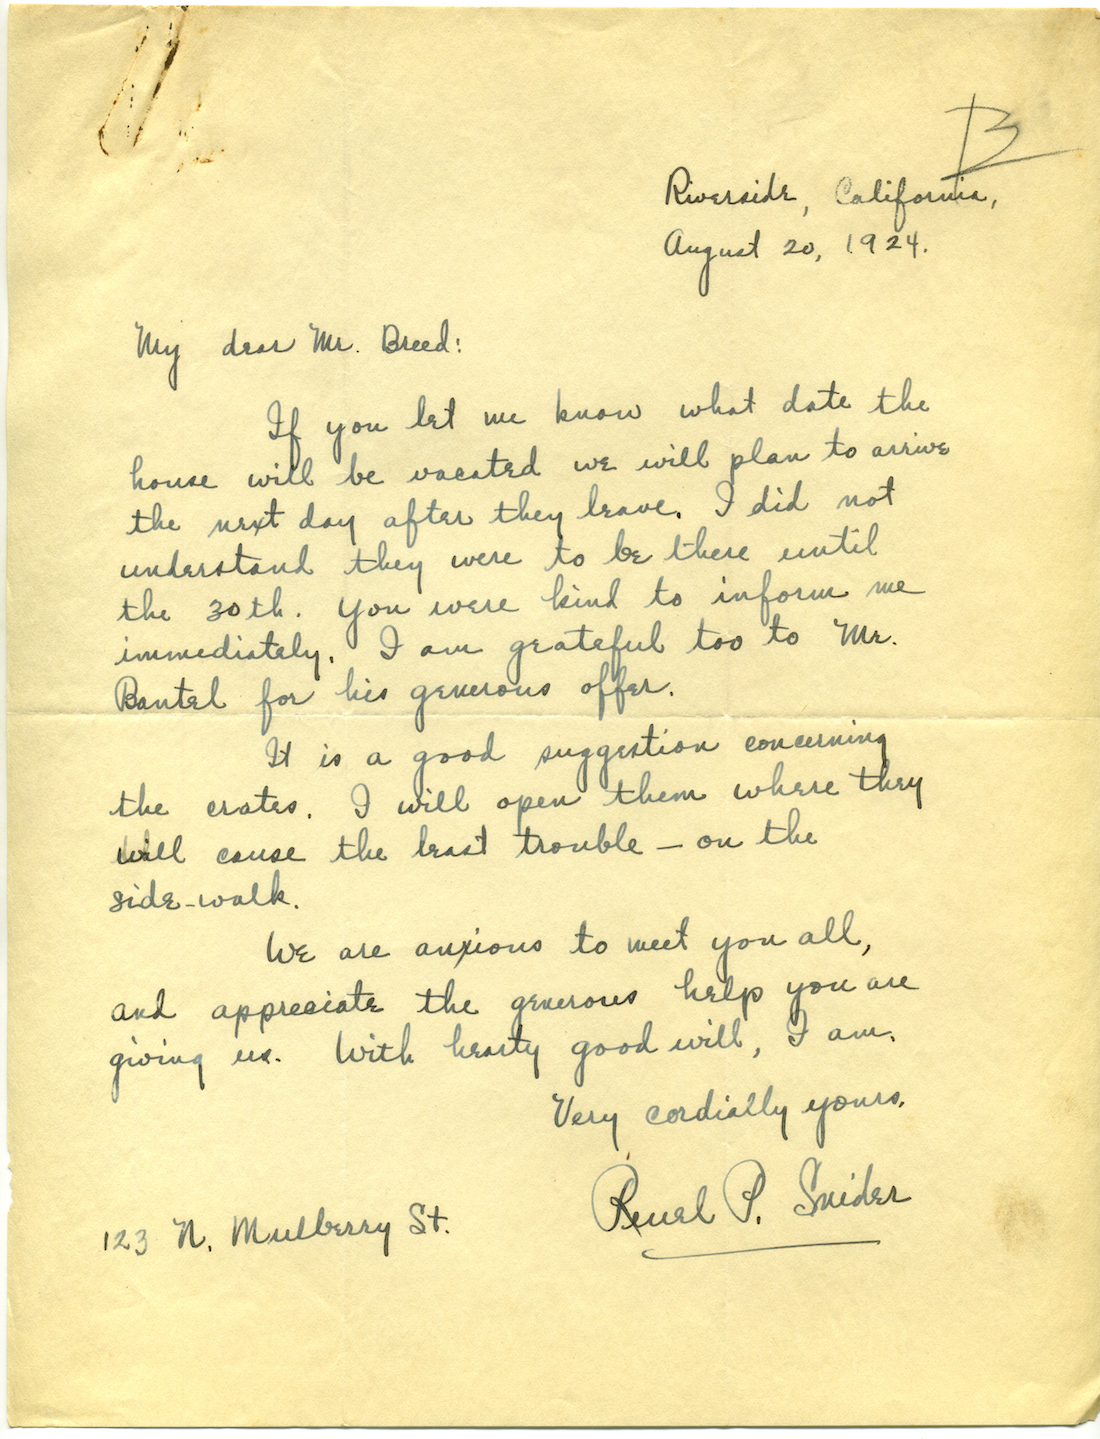 B
Riverside, California,
August 20, 1924.
My dear Mr. Breed:
If you let me know what date the
house will be vacated we will plan to arrive
the next day after they leave. I did not
understand they were to be there until
the 30th. You were kind to inform me
immediately. I am grateful too to Mr.
Bantel for his generous offer.
It is a good suggestion concerning
the crates. I will open them where they
will cause the least trouble – on the
side-walk.
We are anxious to meet you all,
and appreciate the generous help you are
giving us. With hearty good will, I am.
Very cordially yours.
Reuel P. Snider
123 N. Mulberry St.